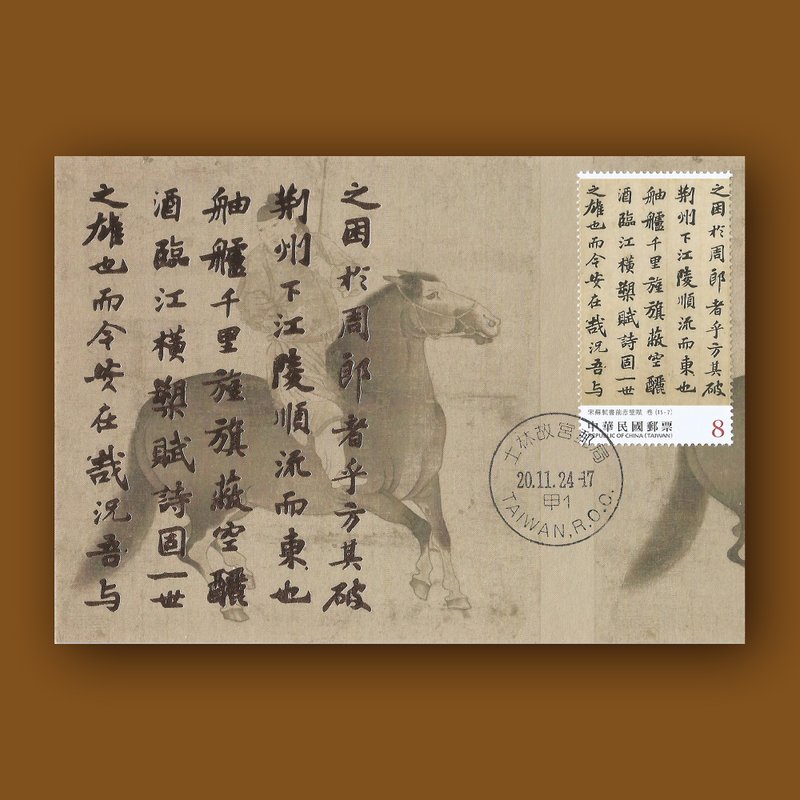 之困於周郎者乎方其破
荊州下江陵順流而東也
舳艫千里旌旗蔽空釃
酒臨江橫槊賦詩固一世
之雄也而今安在哉況吾与
之困於周郎者乎方其破
荊州下江陵順流而東也
舳艫千里旌旗蔽空釃
酒臨江橫槊賦詩固一世
之雄也而今安在哉況吾与
宋蘇軾書前赤壁賦 卷 (15-7)
中華民國郵票
REPUBLIC OF CHINA (TAIWAN)
8
士林故宮郵局
20.11.24-17
甲1
TAIWAN,R.O.C.